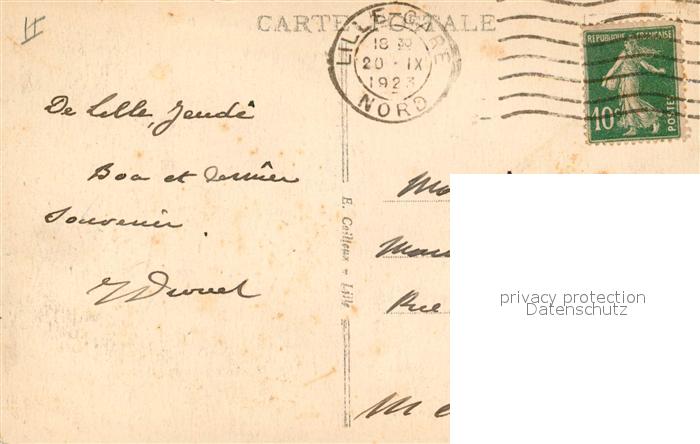 CARTE POSTALE
LILLE GARE
18 30
20 - IX
1923
NORD
REPUBLIQUE FRANÇAISE
10c
POSTES
De Lille, Jeudi
Bon et dernier
Souvenir.
E. Cailleux - Lille
Rue
privacy protection
Datenschutz